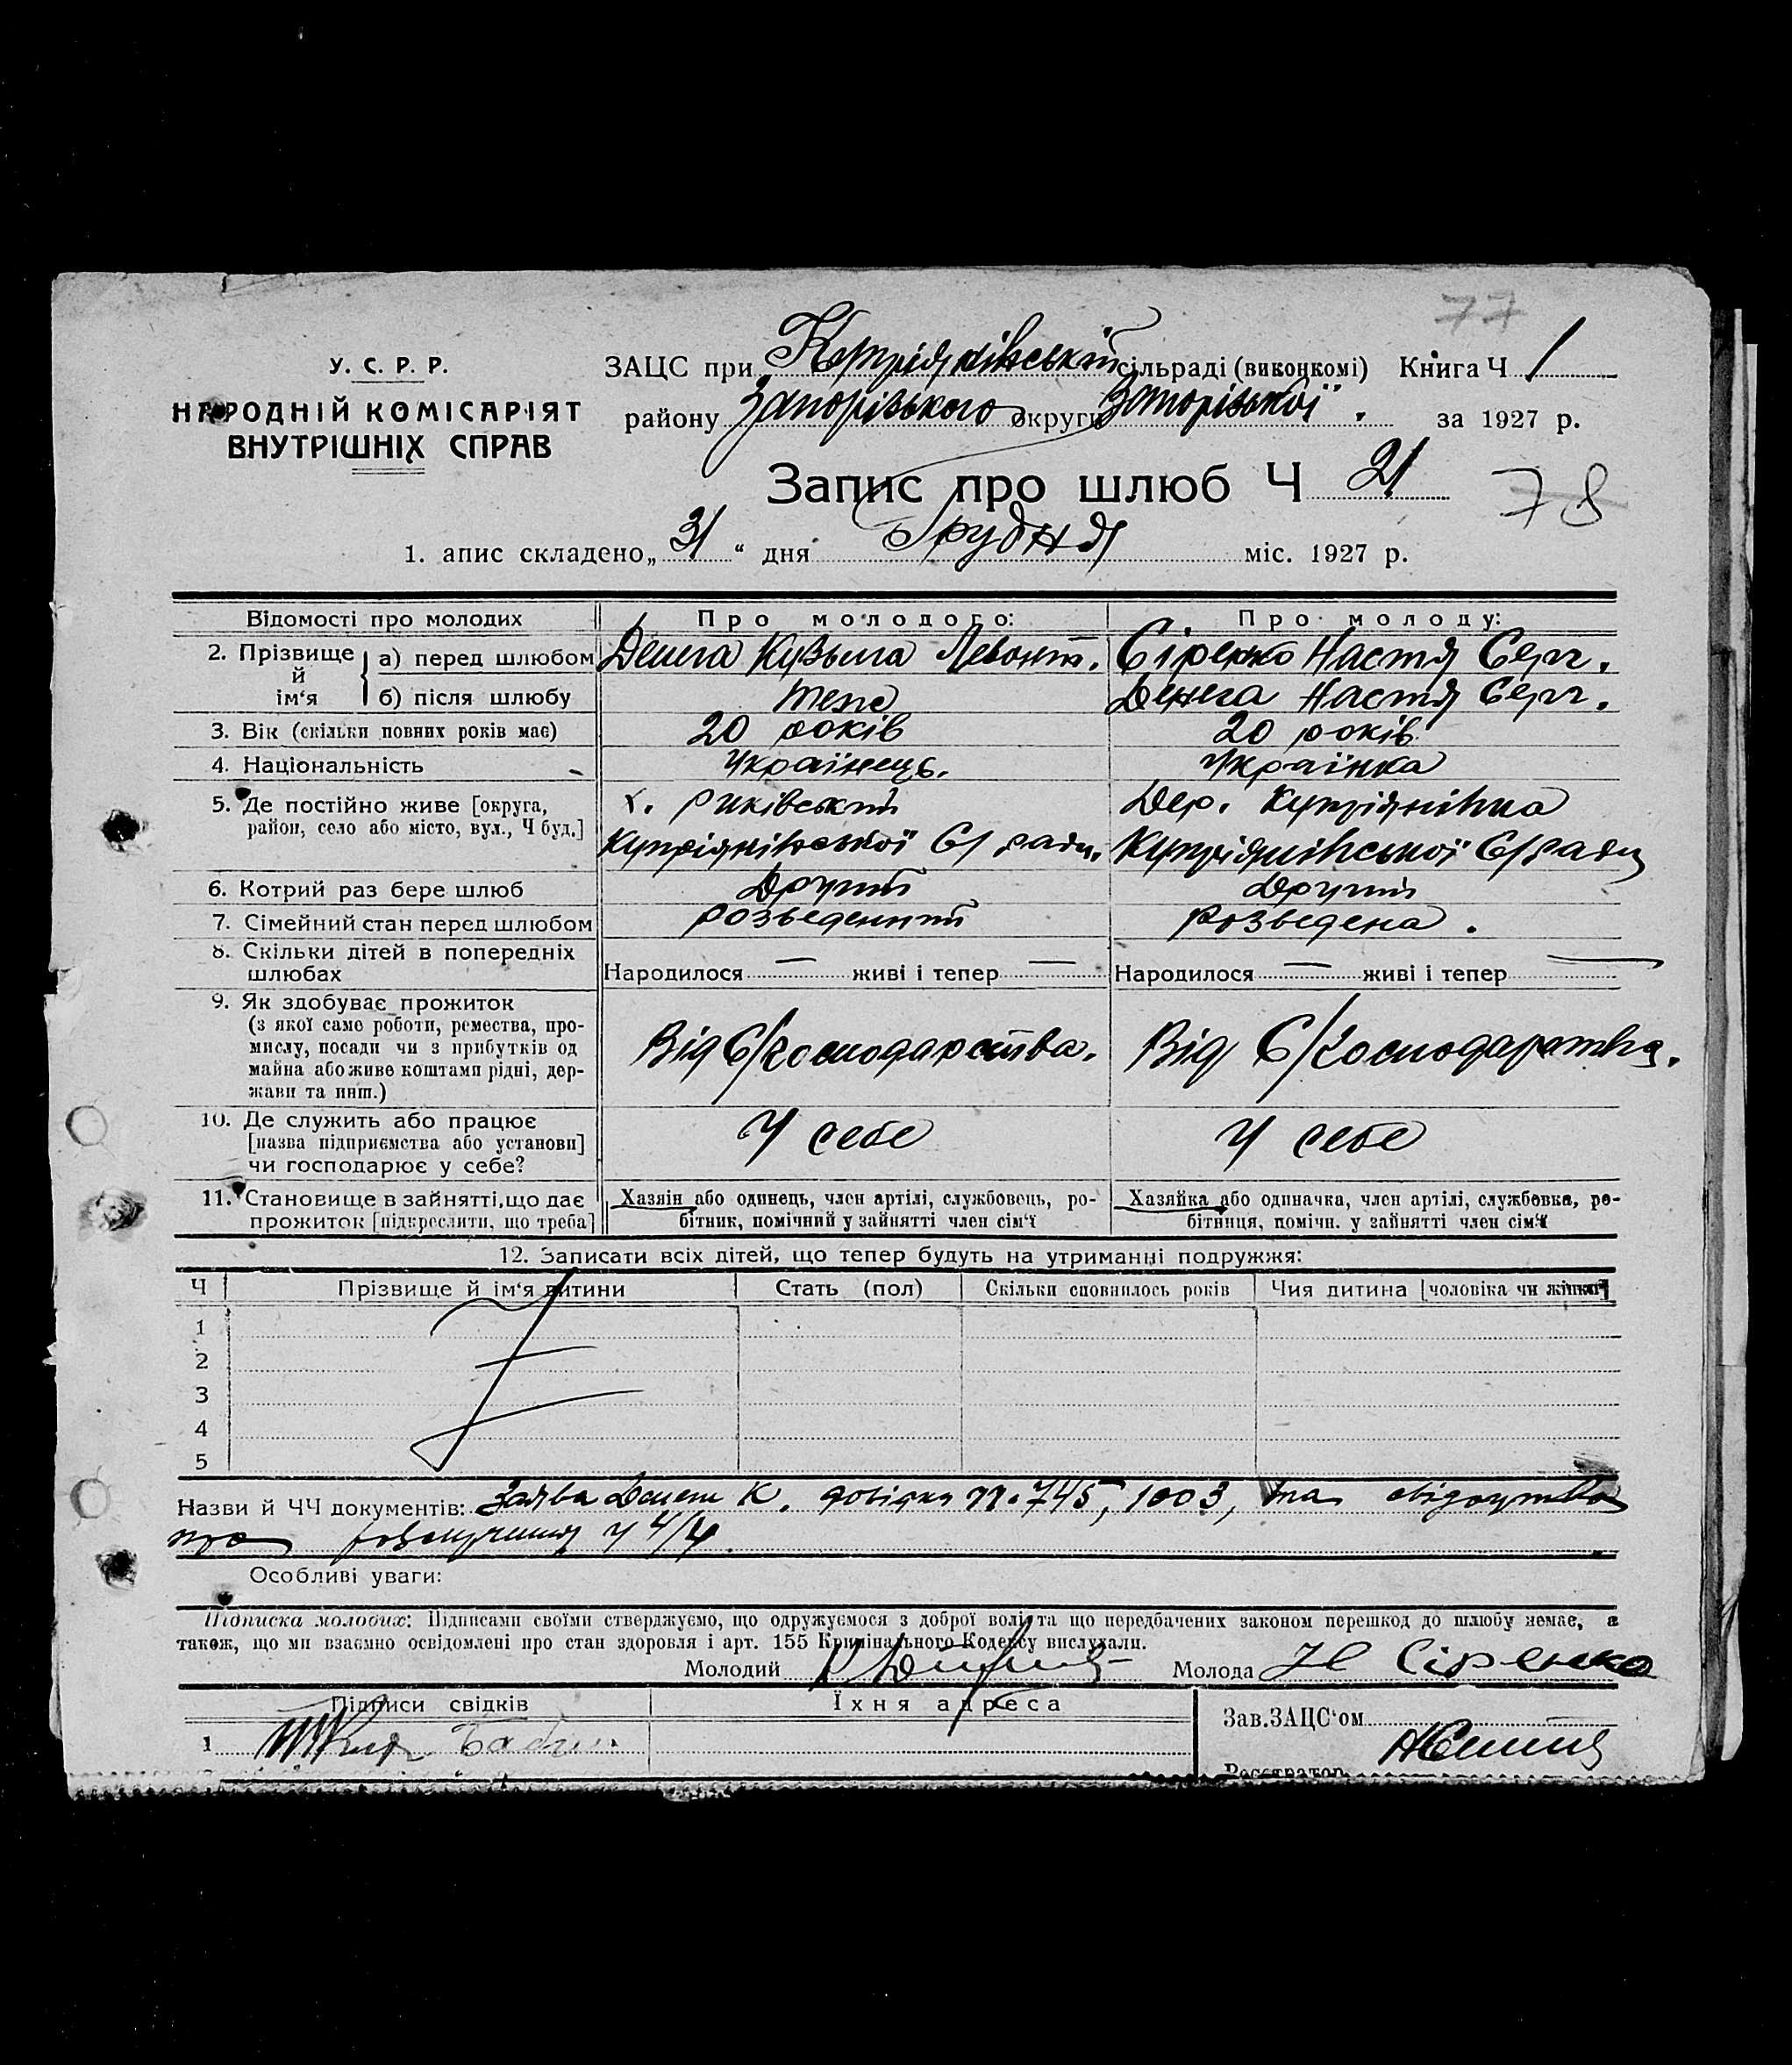 77
У. С. Р. Р.
НАРОДНІЙ КОМІСАРІЯТ
ВНУТРІШНІХ СПРАВ
ЗАЦС при Купріянівській сільраді (виконкомі) Книга Ч 1
району Запорізького округи Запорізької. за 1927 р.
Запис про шлюб Ч 21
78
1. апис складено „ 31 “ дня Грудня міс. 1927 р.
Відомості про молодих Про молодого: Про молоду:
2. Прізвище й ім'я а) перед шлюбом Денега Кузьма Левонт. Сіренко Настя Серг.
б) після шлюбу теж Денега Настя Серг.
3. Вік (скільки повних років має) 20 років 20 років.
4. Національність Українець. Українка
5. Де постійно живе [округа, х. Дер. Купріянівка
район, село або місто, вул., Ч буд.] Купріянівської С/ради. Купріянівської С/ради
6. Котрий раз бере шлюб Другий Другий
7. Сімейний стан перед шлюбом розведенний Розведена.
8. Скільки дітей в попередніх
шлюбах Народилося — живі і тепер — Народилося — живі і тепер —
9. Як здобуває прожиток
(з якої саме роботи, ремества, про-
мислу, посади чи з прибутків од Від С/господарства. Від С/господарства.
майна або живе коштами рідні, дер-
жави та инш.)
10. Де служить або працює У себе У себе
[назва підприємства або установи]
чи господарює у себе?
11. Становище в зайнятті, що дає Хазяін або одинець, член артілі, службовець, ро- Хазяйка або одиначка, член артілі, службовка, ро-
прожиток [підкреслити, що треба] бітник, помічний у зайнятті член сім'ї бітниця, помічн. у зайнятті член сім'ї
12. Записати всіх дітей, що тепер будуть на утриманні подружжя:
Ч Прізвище й ім'я дитини Стать (пол) Скільки сповнилось років Чия дитина [чоловіка чи жінки]
1
2
3
4
5
Назви й ЧЧ документів: Заява К. довідки №. 745, 1003, та свідоцтво
про розлучення
Особливі уваги:
Підписка молодих: Підписами своїми стверджуємо, що одружуємося з доброї волі та що передбачених законом перешкод до шлюбу немає, а
також, що ми взаємно освідомлені про стан здоровля і арт. 155 Кримінального Кодексу вислухали.
Молодий Молода Н Сіренко
Підписи свідків Їхня адреса Зав. ЗАЦС'ом
1
Реєстратор